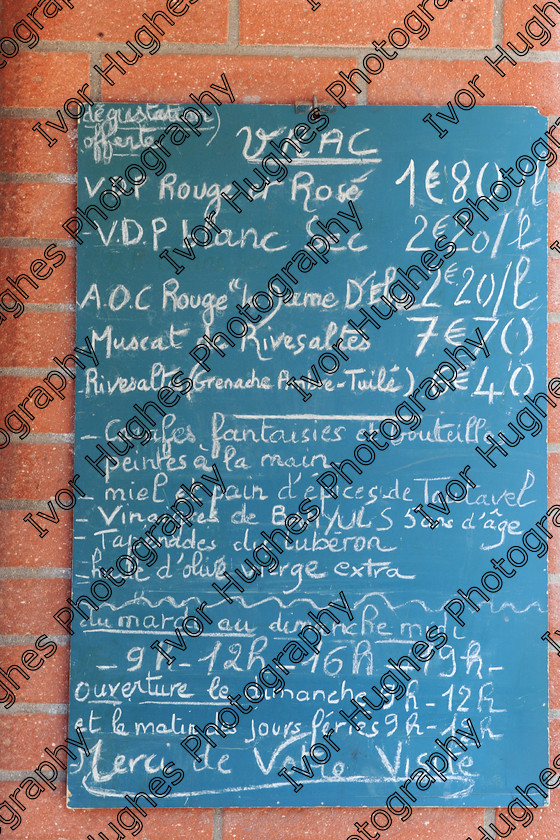 dégustation
offerte)
VRAC
V.D.P Rouge et Rosé 1€80/l
V.D.P blanc Sec 2€20/l
A.O.C Rouge "Larame D'El 2€20/l
Muscat de Rivesaltes 7€70
Rivesaltes (Grenache Ambré-Tuilé) €40
- Carafes fantaisies et bouteilles
peintes à la main
- miel et pain d'épices de Tautavel
- Vinaigres de BANYULS 5 ans d'âge
- Tapenades du Lubéron
- huile d'olive vierge extra
du mardi au dimanche midi
- 9h - 12h - 16h - 19h -
ouverture le dimanche 9h - 12h
et le matin des jours fériés 9h - 12h
Merci de Votre Visite
Ivor Hughes Photography